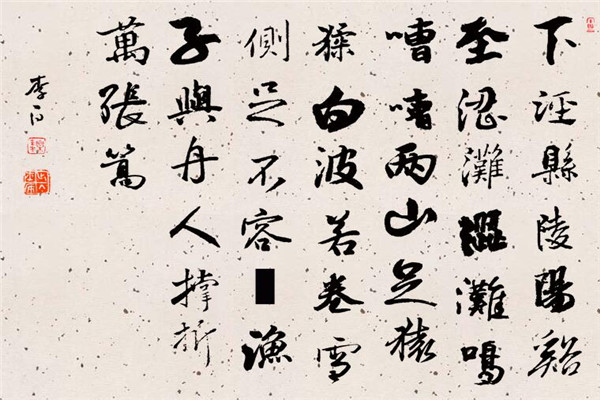 下涇縣陵陽谿
至涩灘澀灘鳴
嘈嘈兩山足猿
猱白波若卷雪
側足不容漁
子與舟人撐折
萬張篙
李白